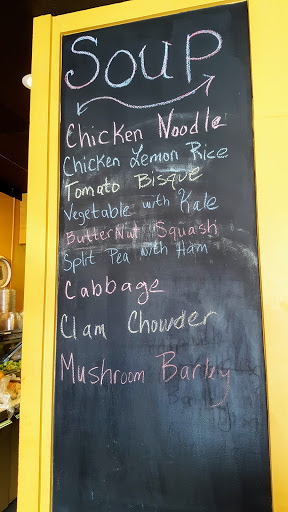 Soup
Chicken Noodle
Chicken Lemon Rice
Tomato Bisque
Vegetable with Kale
ButterNut Squash
Split Pea with Ham
Cabbage
Clam Chowder
Mushroom Barley